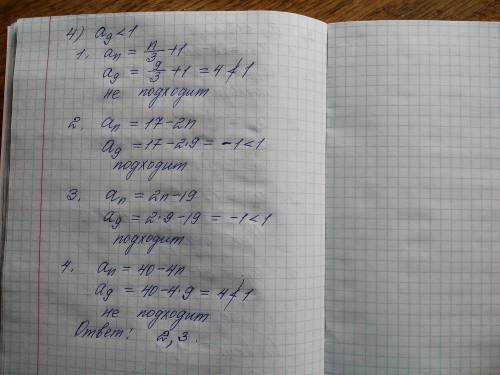 4) a₉<1
1. aₙ = n/3 + 1
a₉ = 9/3 + 1 = 4 ≮ 1
не подходит
2. aₙ = 17-2n
a₉ = 17-2·9 = -1<1
подходит
3. aₙ = 2n-19
a₉ = 2·9-19 = -1<1
подходит
4. aₙ = 40-4n
a₉ = 40-4·9 = 4 ≮ 1
не подходит
Ответ: 2, 3.